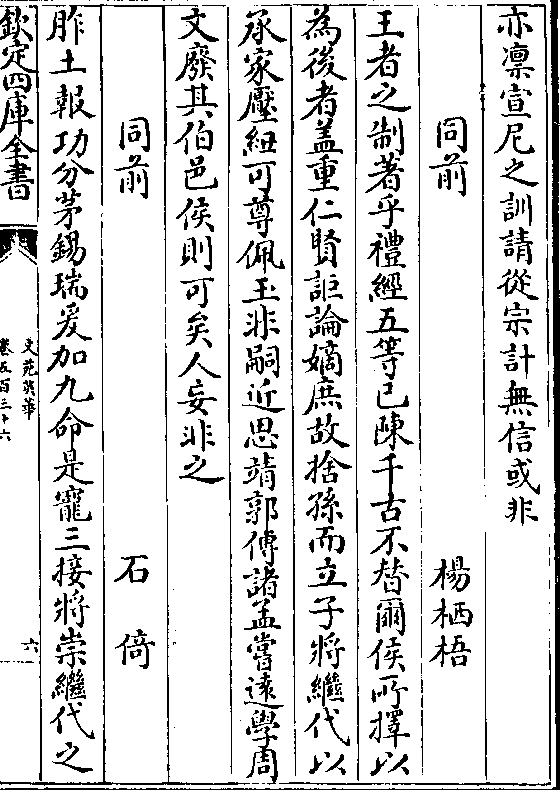 亦凛宣尼之訓請從宗計無信或非
同前 楊栖梧
王者之制著乎禮經五等已陳千古不替爾侯所擇以
為後者盖重仁賢詎論嫡庶故捨孫而立子將繼代以
承家壓紐可尊佩玉非嗣近思靖郭傅諸孟嘗逺學周
文廢其伯邑侯則可矣人妄非之
同前 石倚
胙土報功分茅錫瑞爰加九命是寵三接將崇繼代之
欽定四庫全書
文苑英華
卷五百三十六
六